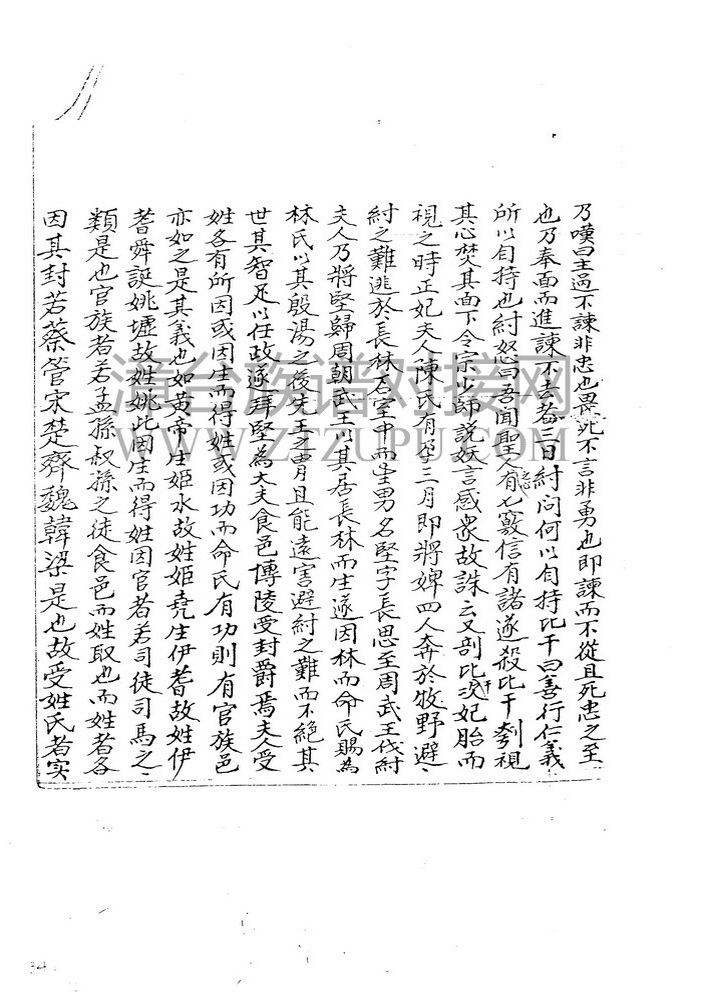 乃嘆曰主過不諫非忠也畏死不言非勇也即諫而不從且死忠之至
也乃奉面而進諫不去者三日紂问何以自持比干曰善行仁義
所以自持也紂怒曰吾聞聖人有七竅信有諸遂殺比干刳視
其心焚其面下令宗少師説妖言感衆故誅云又剖比干妃胎而
視之時正妃夫人陳氏有孕三月即將婢四人奔於牧野避
紂之難逃於長林石室中而生男名堅字長思至周武王伐紂
夫人乃將堅歸周朝武王以其居長林而生遂因林而命氏賜為
林氏以其殷湯之後先王之胄且能遠害避紂之難而不絕其
世其智足以任政遂拜堅為大夫食邑博陵受封爵焉夫人受
姓各有所因或因生而得姓或因功而命氏有功則有官族邑
亦如之是其義也如黄帝生姬水故姓姬堯生伊耆故姓伊
耆舜誕姚墟故姓姚此因生而得姓因官者若司徒司馬之
類是也官族者若孟孫叔孫之徒食邑而姓取也而姓者各
因其封若蔡管宋楚齊魏韓梁是也故受姓氏者实
清台族谱对接网
WWW.ZTZUPU.COM